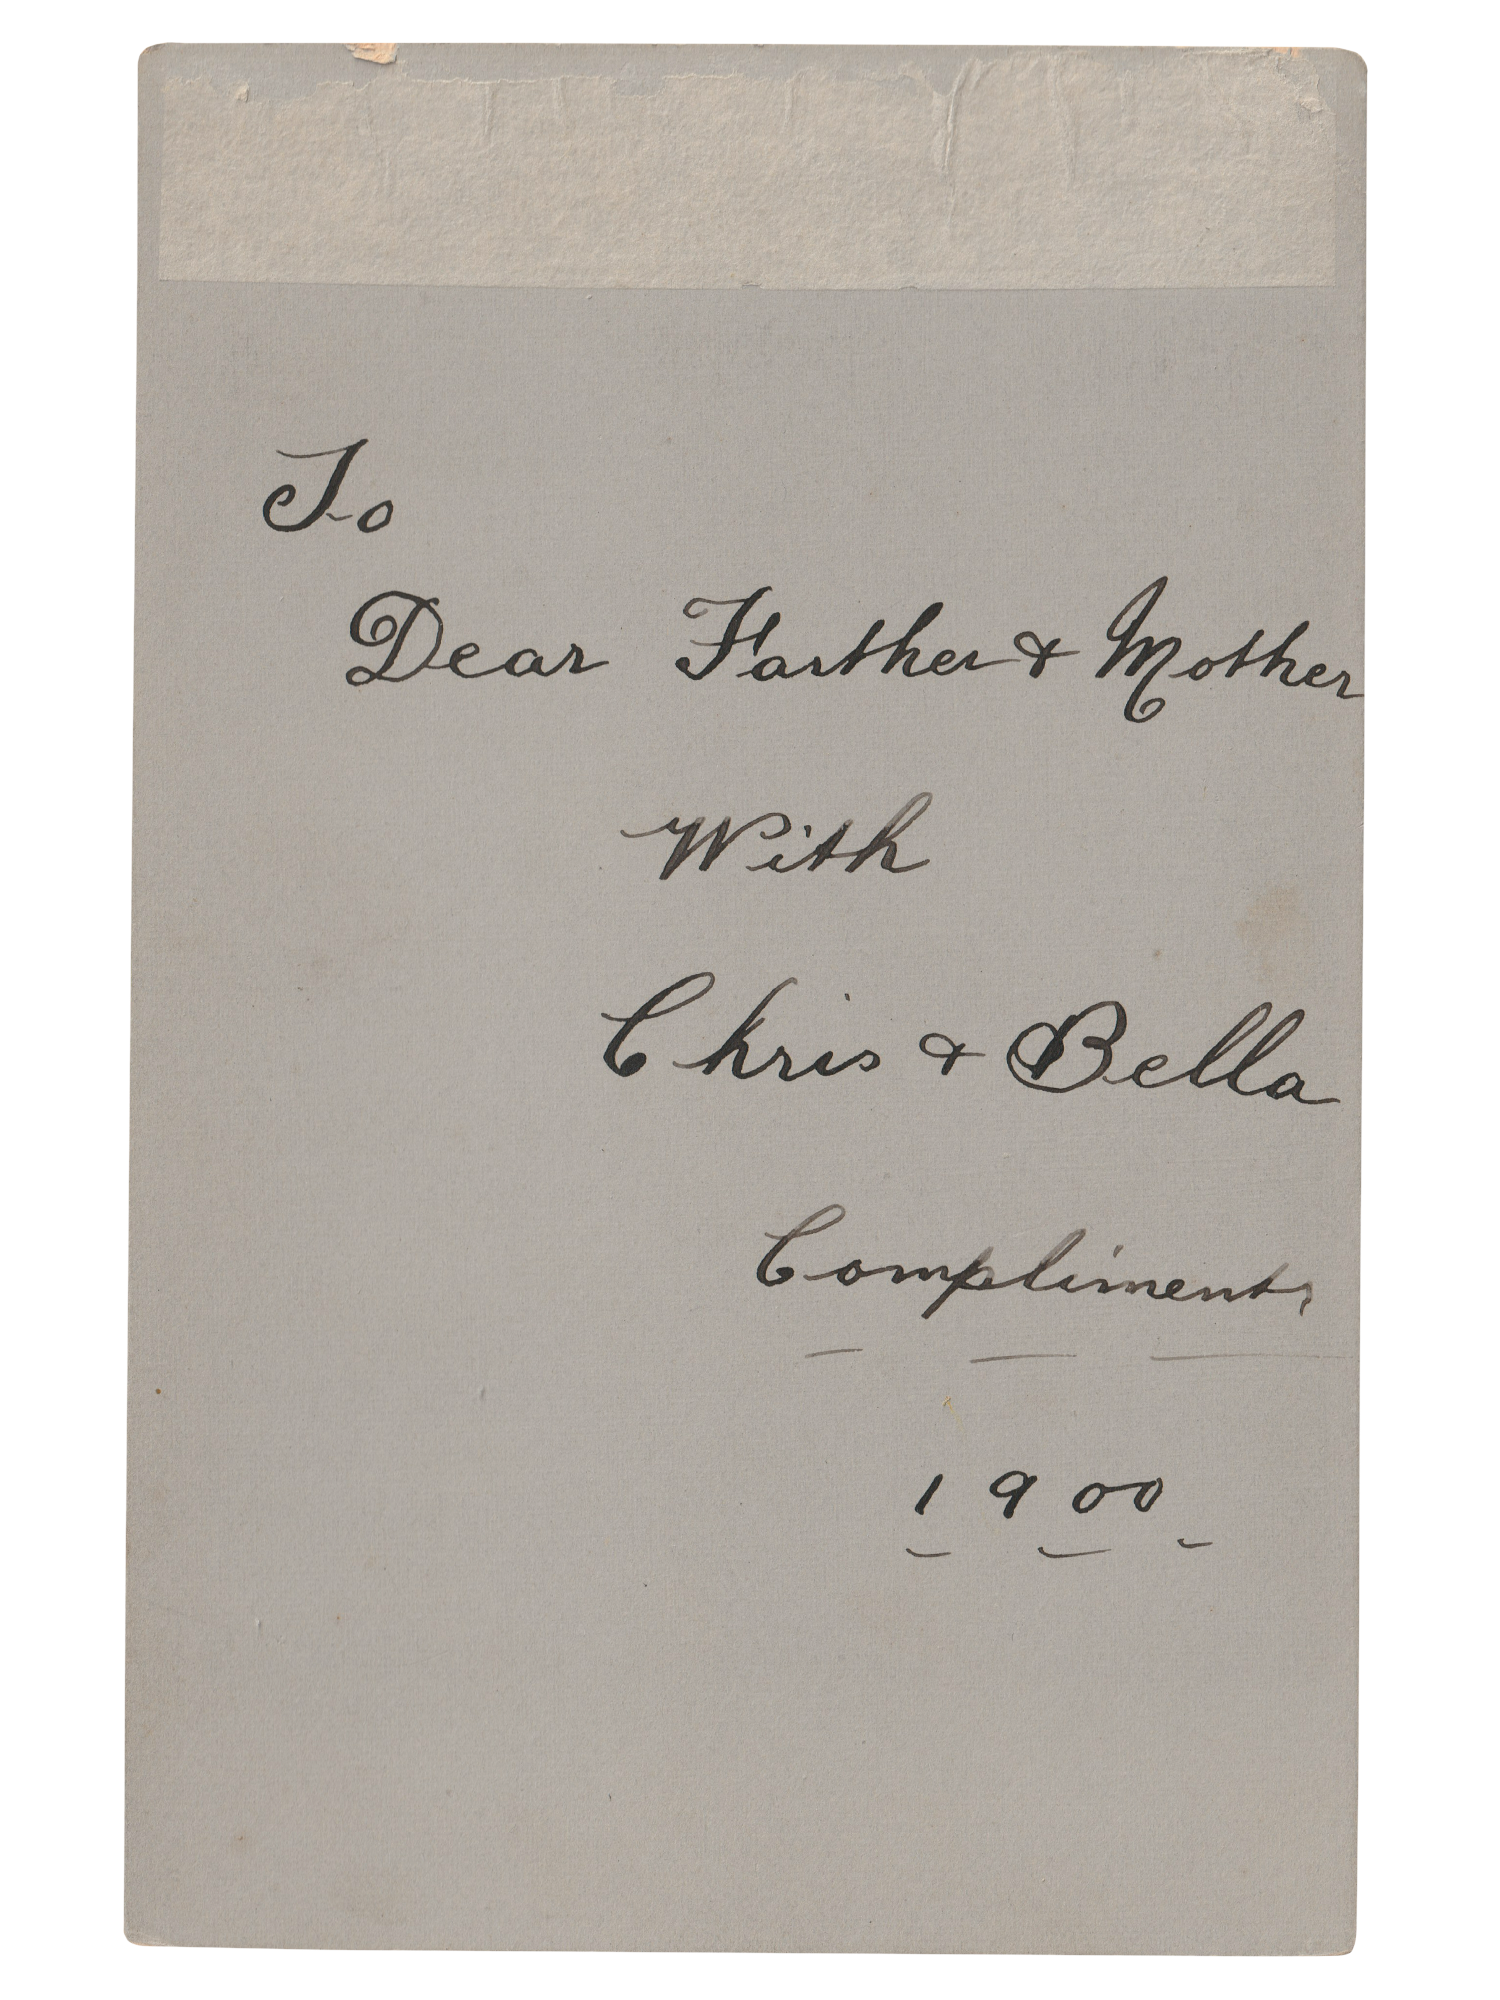 To
Dear Farther & Mother
With
Chris & Bella
Compliments
1900